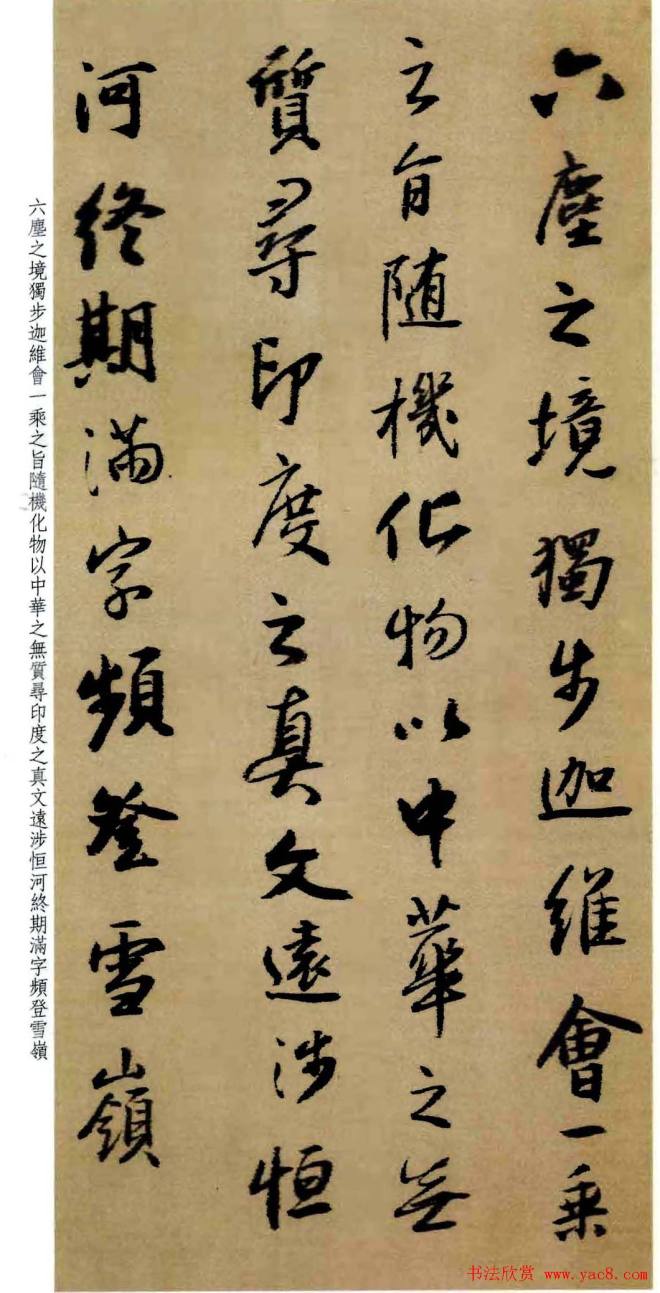 六塵之境獨步迦維會一乘
之旨随機化物以中華之无
質尋印度之真文遠涉恒
河終期滿字頻登雪嶺
六塵之境獨步迦維會一乘之旨隨機化物以中華之無質尋印度之真文遠涉恒河終期滿字頻登雪嶺
书法欣赏 www.yac8.com